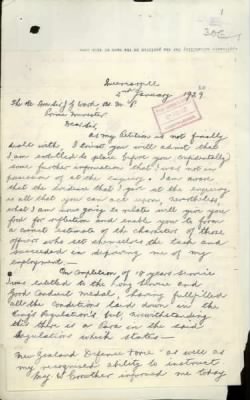 Invercargill
2nd January 1929
The Rt Honble J G Ward
Prime Minister
Dear Sir,
As my Petition is not finally
dealt with, I trust you will admit that I
am entitled to place before you confidentially
some further information that I was not in
possession of at the enquiry. I am aware
that the evidence that I gave at the enquiry
is all that you can act upon, nevertheless,
what I am now going to relate will give you
food for reflection and enable you to form
a correct estimate of the character of those
officers who set themselves the task and
succeeded in depriving me of my
employment —
On completion of 18 years service
I was entitled to the Long Service and
Good Conduct medal, having fulfilled
all the conditions laid down in the
King's Regulations but, notwithstanding
this there is a Para in the said
Regulations which states —
New Zealand Defence Force" as well as
my recognised ability to instruct
Maj W Crowther informed me today